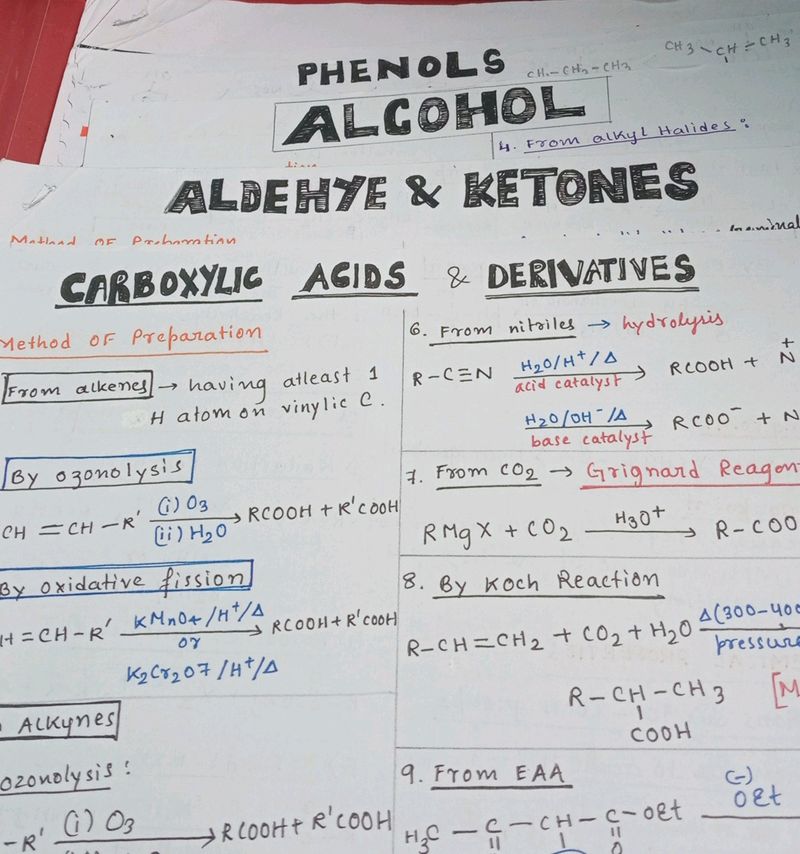 PHENOLS
CH3-CH2-CH3
CH3 CH-CH3
ALCOHOL
4. From alkyl Halides:
ALDEHYE & KETONES
Method OF Preparation
CARBOXYLIC ACIDS & DERIVATIVES
Method OF Preparation
From alkenes → having atleast 1
H atom on vinylic C.
By ozonolysis
CH=CH-R' (i) O3 (ii) H2O → RCOOH + R'COOH
By oxidative fission
H=CH-R' KMnO4/H+/Δ or K2Cr2O7/H+/Δ → RCOOH + R'COOH
Alkynes
ozonolysis:
-R' (i) O3 → RCOOH + R'COOH
6. From nitriles → hydrolysis
R-C≡N H2O/H+/Δ acid catalyst → RCOOH + N+
H2O/OH-/Δ base catalyst → RCOO- + N
7. From CO2 → Grignard Reagen
RMgX + CO2 H3O+ → R-COO
8. By Koch Reaction
R-CH=CH2 + CO2 + H2O Δ(300-400 pressure
R-CH-CH3 [M
COOH
9. From EAA
H3C-C-CH-C-OEt (-) OEt
O